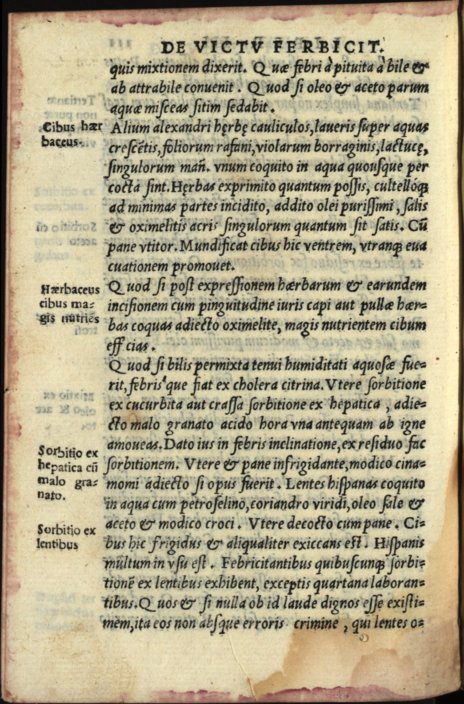 DE VICTV FERBICIT.
quis mixtionem dixerit. Quæ febri à pituita à bile &
ab attrabile conuenit. Quod si oleo & aceto parum
aquæ misceas sitim sedabit.
Cibus hær
baceus.
Alium alexandri hęrbę cauliculos, laueris super aquas
crescētis, foliorum rafani, violarum borraginis, lactucę,
singulorum mañ. vnum coquito in aqua quousque per
cocta sint. Hęrbas exprimito quantum possis, cultelloq́;
ad minimas partes incidito, addito olei purissimi, salis
& oximelitis acris singulorum quantum sit satis. Cū
pane vtitor. Mundificat cibus hic ventrem, vtranq; eua
cuationem promouet.
Hærbaceus
cibus ma=
gis nutriēs
Quod si post expressionem hærbarum & earundem
incisionem cum pinguitudine iuris capi aut pullæ hær=
bas coquas adiecto oximelite, magis nutrientem cibum
efficias.
Quod si bilis permixta tenui humiditati aquosæ fue=
rit, febris que fiat ex cholera citrina. Vtere sorbitione
ex cucurbita aut crassa sorbitione ex hepatica, adie=
cto malo granato acido hora vna antequam ab igne
amoueas. Dato ius in febris inclinatione, ex residuo fac
Sorbitio ex
hepatica cū
malo gra=
nato.
sorbitionem. Vtere & pane infrigidante, modico cina=
momi adiecto si opus fuerit. Lentes hispanas coquito
in aqua cum petroselino, coriandro viridi, oleo sale &
aceto & modico croci. Vtere decocto cum pane. Ci=
Sorbitio ex
lentibus
bus hic frigidus & aliqualiter exiccans est. Hispanis
multum in vsu est. Febricitantibus quibuscunq; sorbi=
tionē ex lentibus exhibent, exceptis quartana laboran=
tibus. Quos & si nulla ob id laude dignos esse existi=
mem, ita eos non absque erroris crimine, qui lentes o=